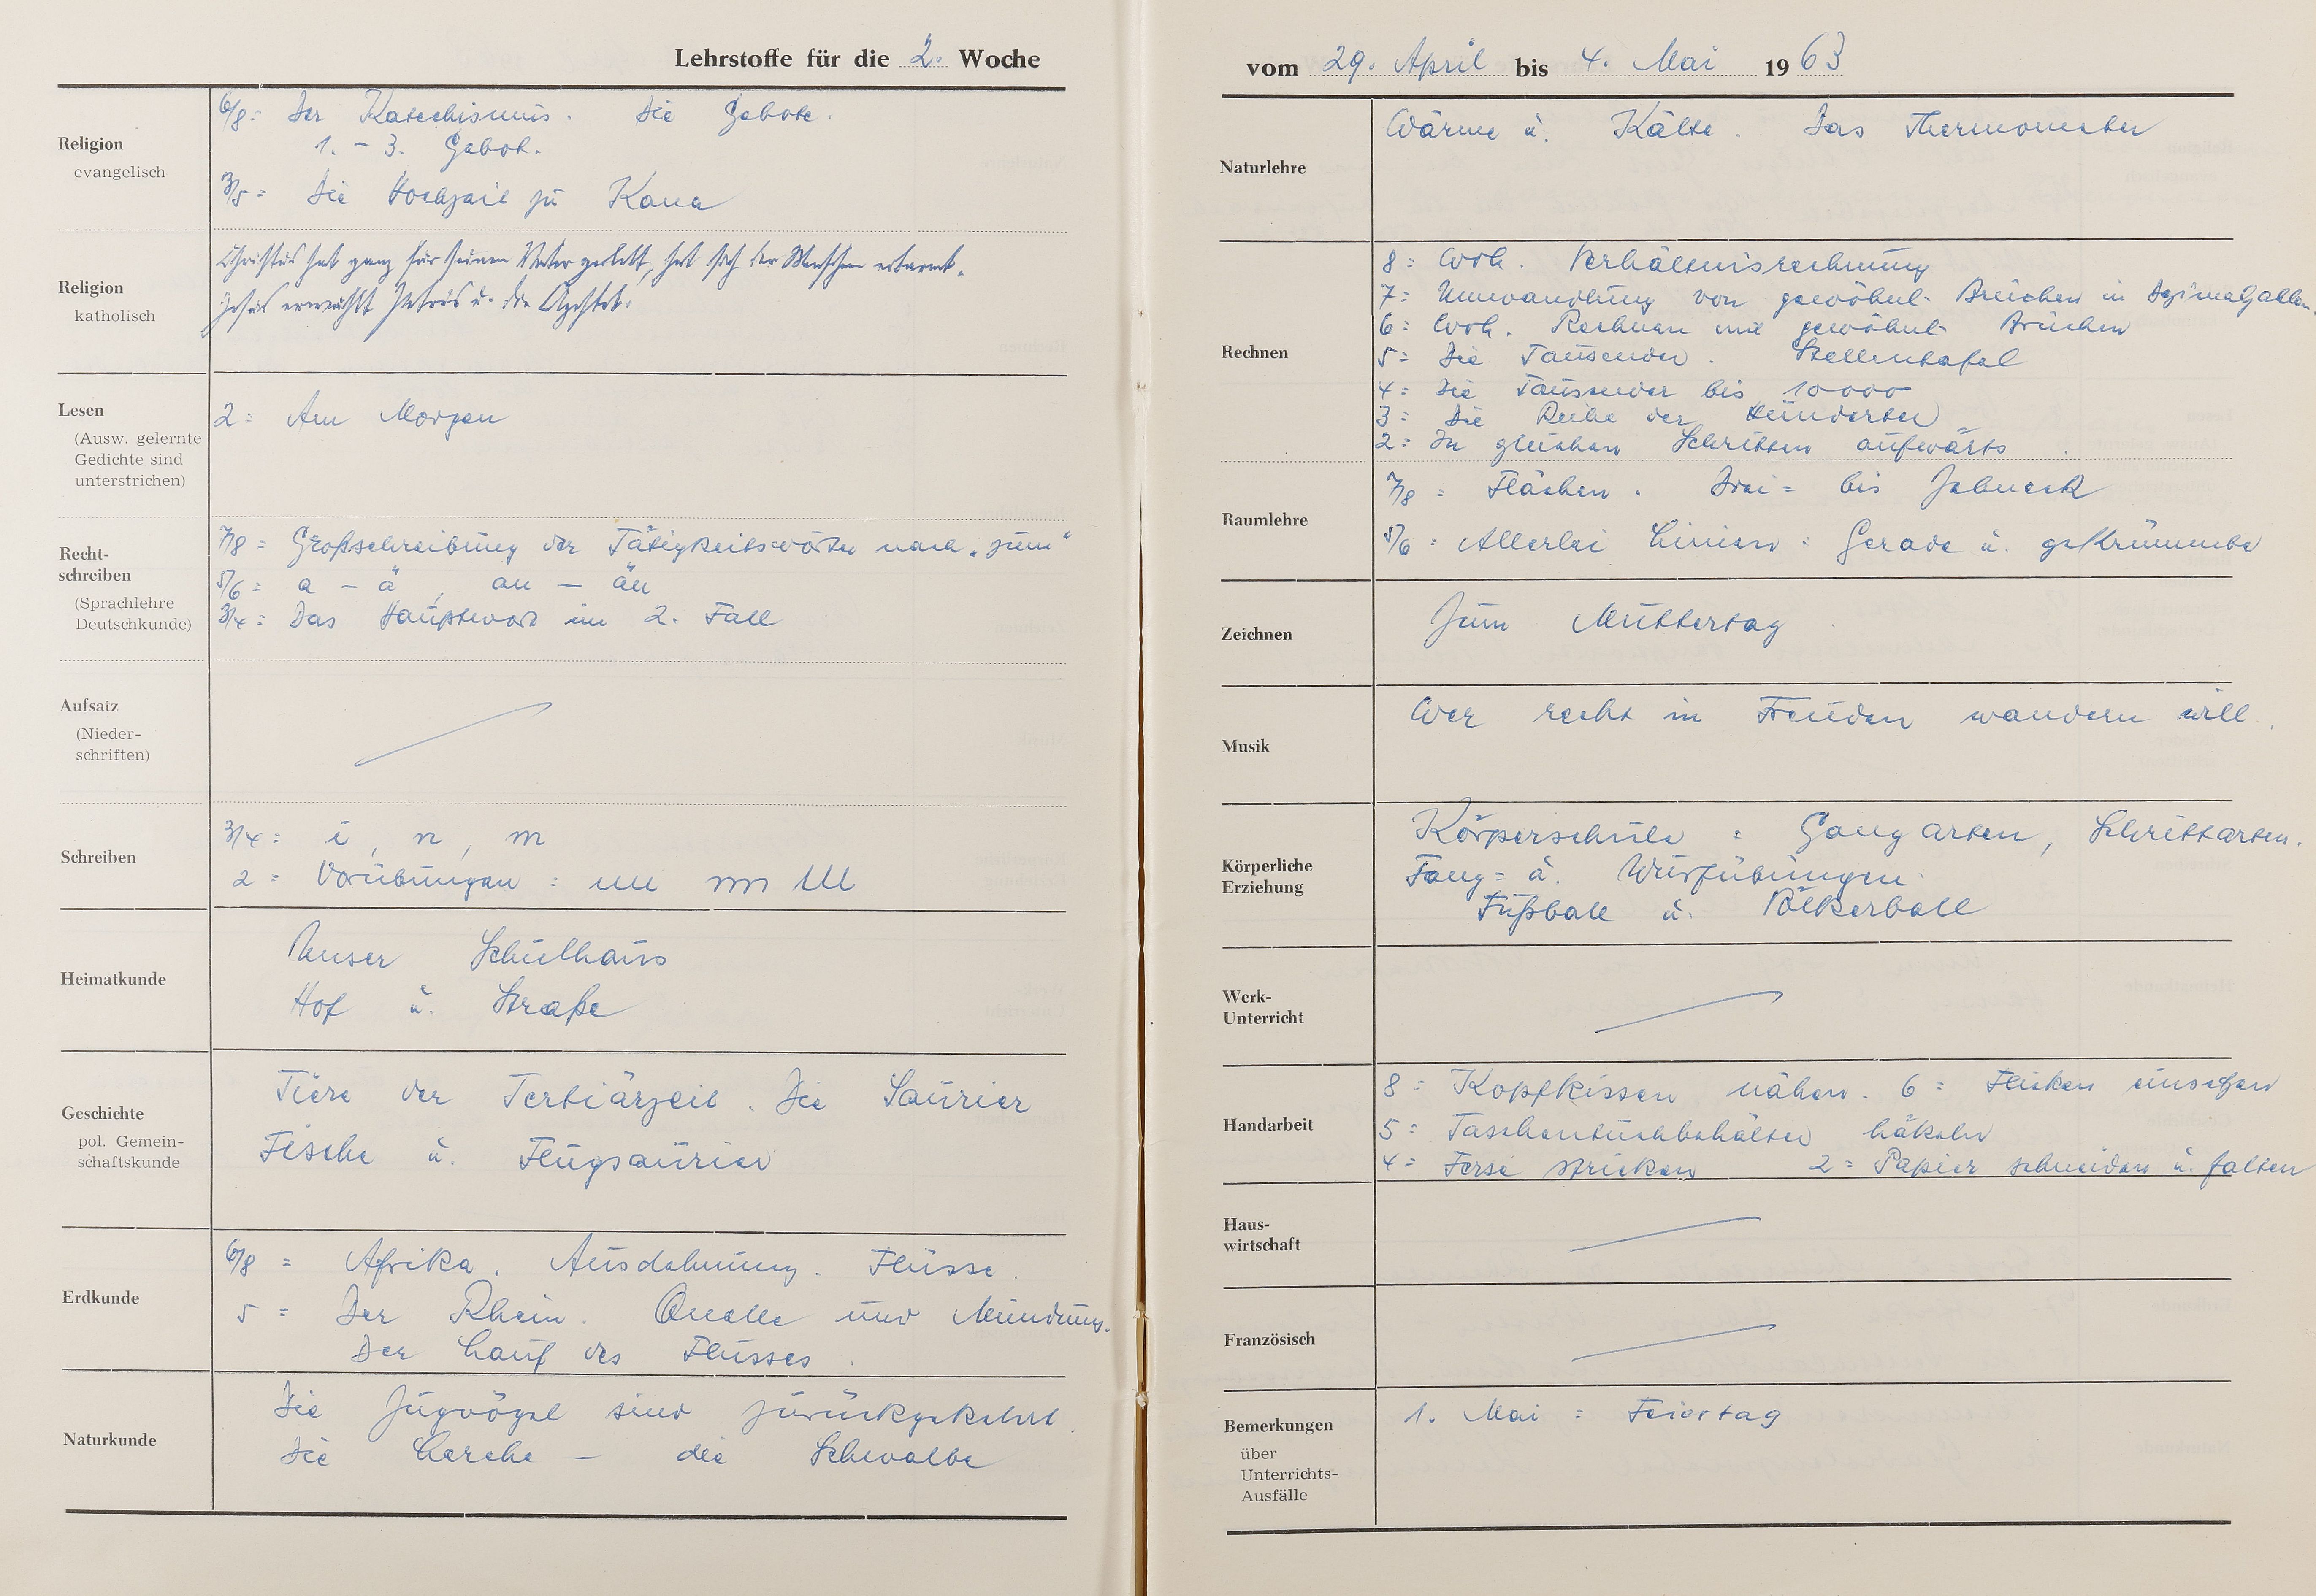 Lehrstoffe für die 2. Woche
Religion
evangelisch
6/8 = Der Katechismus. Die Gebote.
1. - 3. Gebot.
3/5 = Die Hochzeit zu Kana
Religion
katholisch
Christus hat ganz für seinen Vater gelebt, hat sich der Menschen erbarmt.
Jesus erwählt Petrus u. die Apostel.
Lesen
(Ausw. gelernte
Gedichte sind
unterstrichen)
2 = Am Morgen
Recht-
schreiben
(Sprachlehre
Deutschkunde)
7/8 = Großschreibung der Tätigkeitswörter nach „zum“
5/6 = a – ä, au – äu
3/4 = Das Hauptwort im 2. Fall
Aufsatz
(Nieder-
schriften)
Schreiben
3/4 = i, n, m
2 = Vorübungen :
Heimatkunde
Unser Schulhaus
Hof u. Straße
Geschichte
pol. Gemein-
schaftskunde
Tiere der Tertiärzeit. Die Saurier
Fische u. Flugsaurier
Erdkunde
6/8 = Afrika. Ausdehnung. Flüsse.
5 = Der Rhein. Quelle und Mündung.
Der Lauf des Flusses.
Naturkunde
Die Zugvögel sind zurückgekehrt.
Die Lerche – die Schwalbe
vom 29. April bis 4. Mai 1963
Naturlehre
Wärme u. Kälte. Das Thermometer
Rechnen
8 = Wdh. Verhältnisrechnung
7 = Umwandlung von gewöhnl. Brüchen in Dezimalzahlen.
6 = Wdh. Rechnen mit gewöhnl. Brüchen
5 = Die Tausender. Stellentafel
4 = Die Tausender bis 10000
3 = Die Reihe der Hunderter
2 = In gleichen Schritten aufwärts
Raumlehre
7/8 = Flächen. Drei= bis Zehneck
5/6 = Allerlei Linien : Gerade u. gekrümmte
Zeichnen
Zum Muttertag
Musik
Wer recht in Freuden wandern will.
Körperliche
Erziehung
Körperschule = Gangarten, Schrittarten.
Fang= u. Wurfübungen
Fußball u. Völkerball
Werk-
Unterricht
Handarbeit
8 = Kopfkissen nähen. 6 = Flicken einsetzen
5 = Taschentuchbehälter häkeln
4 = Ferse stricken 2 = Papier schneiden u. falten
Haus-
wirtschaft
Französisch
Bemerkungen
über
Unterrichts-
Ausfälle
1. Mai = Feiertag